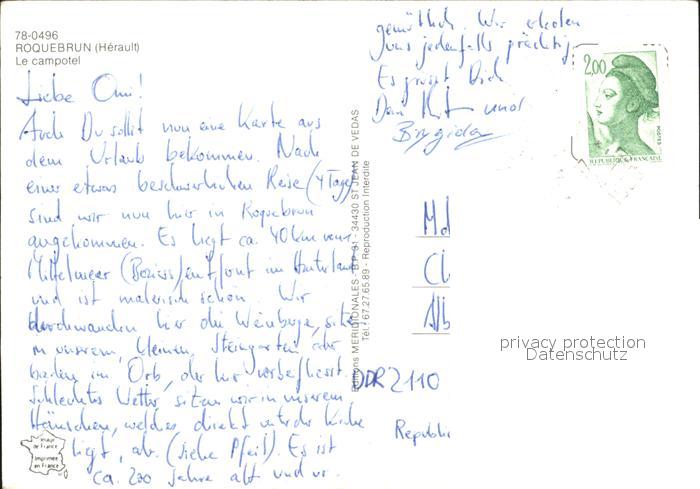 78-0496
ROQUEBRUN (Hérault)
Le campotel
Liebe Omi!
Auch Du sollst nun eine Karte aus
dem Urlaub bekommen. Nach
einer etwas beschwerlichen Reise (4 Tage)
sind wir nun hier in Roquebrun
angekommen. Es liegt ca. 40 km vom
Mittelmeer (Beziers) entfernt im Hinterland
und ist malerisch schön. Wir
durchwandern hier die Weinberge, sitzen
in unserem kleinen Steingarten oder
baden im Orb, der hier vorbeifliesst.
Schlechtes Wetter sitzen wir in unserem
Häuschen, welches direkt unter der Kirche
liegt, ab. (siehe Pfeil). Es ist
ca. 200 Jahre alt und ur-
gemütlich. Wir erholen
uns jedenfalls prächtig.
Es grüsst Dich
Dein Kurt und
Brygida
Editions MERIDIONALES - B.P. 31 - 34430 ST JEAN DE VEDAS
Tél.: 67.27.65.89 - Reproduction Interdite
2,00
POSTES
REPUBLIQUE FRANÇAISE
DDR 2110
Republi
Image de France
Imprimée en France
privacy protection
Datenschutz